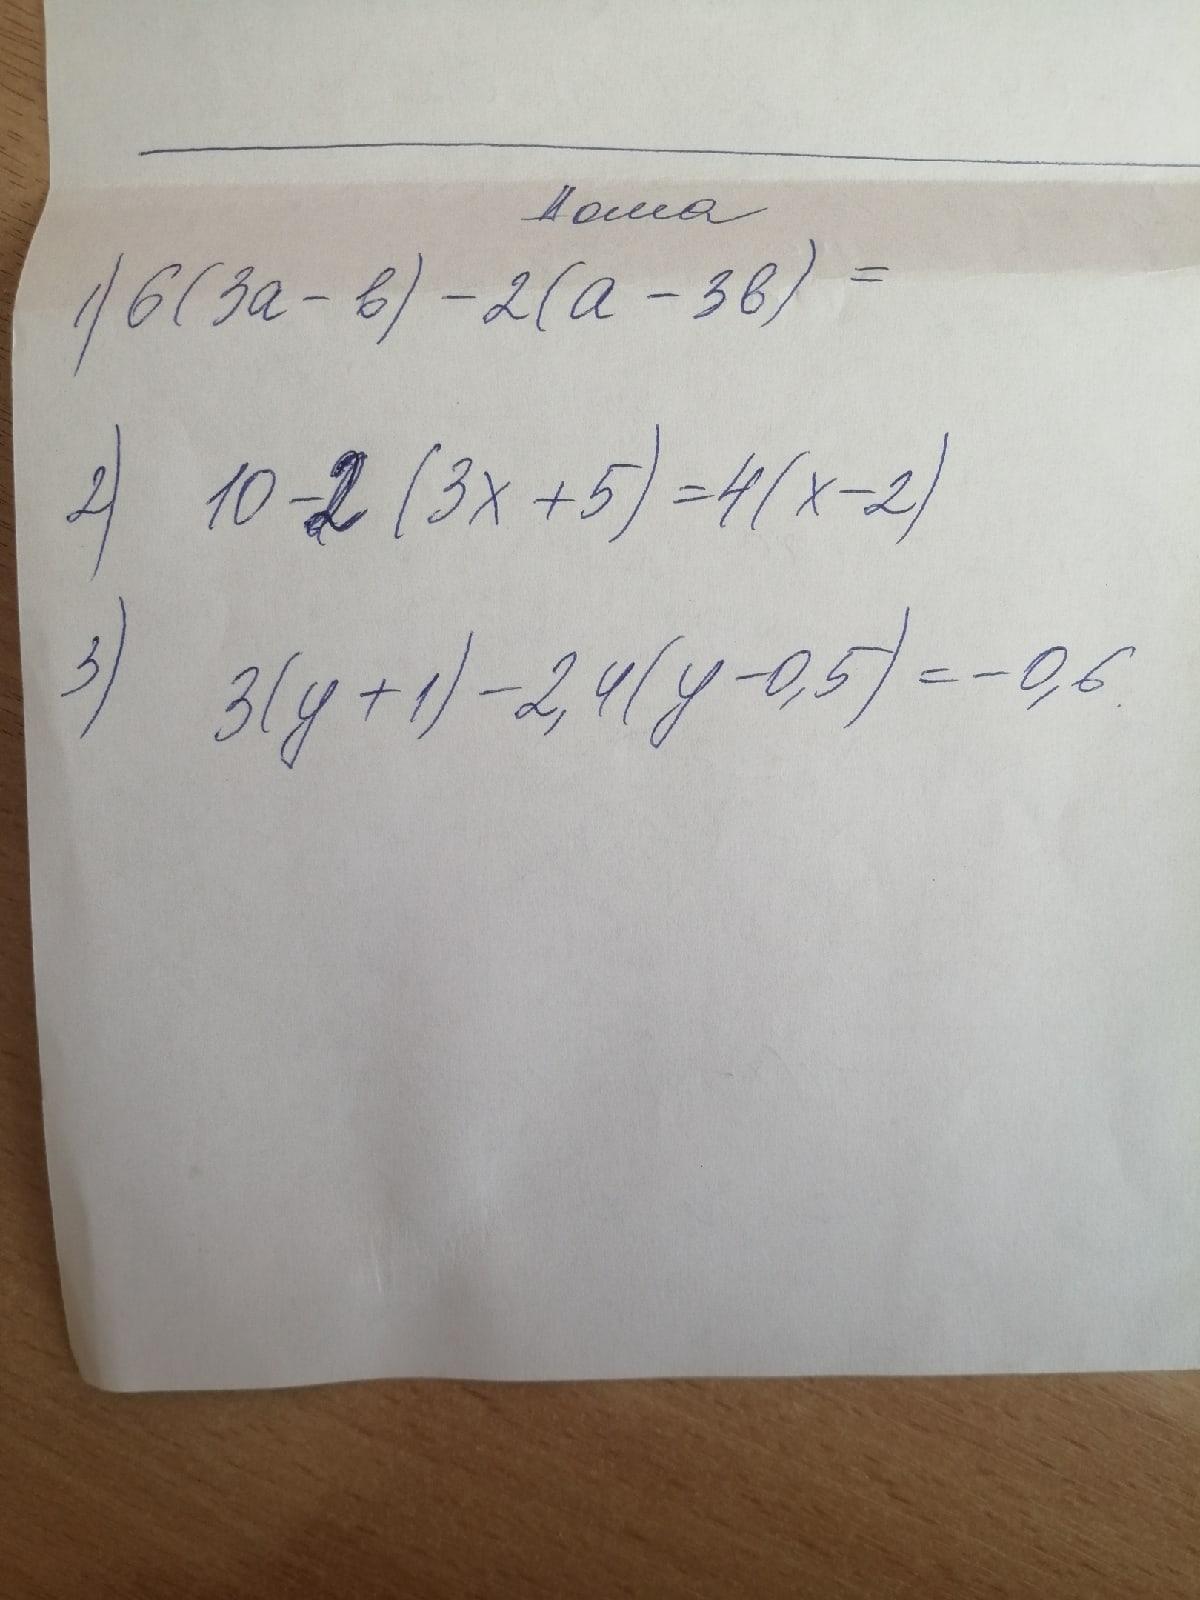 Дома
1) 6(3а - в) - 2(а - 3в) =
2) 10 - 2 (3x + 5) = 4(x - 2)
3) 3(y + 1) - 2,4(y - 0,5) = -0,6.